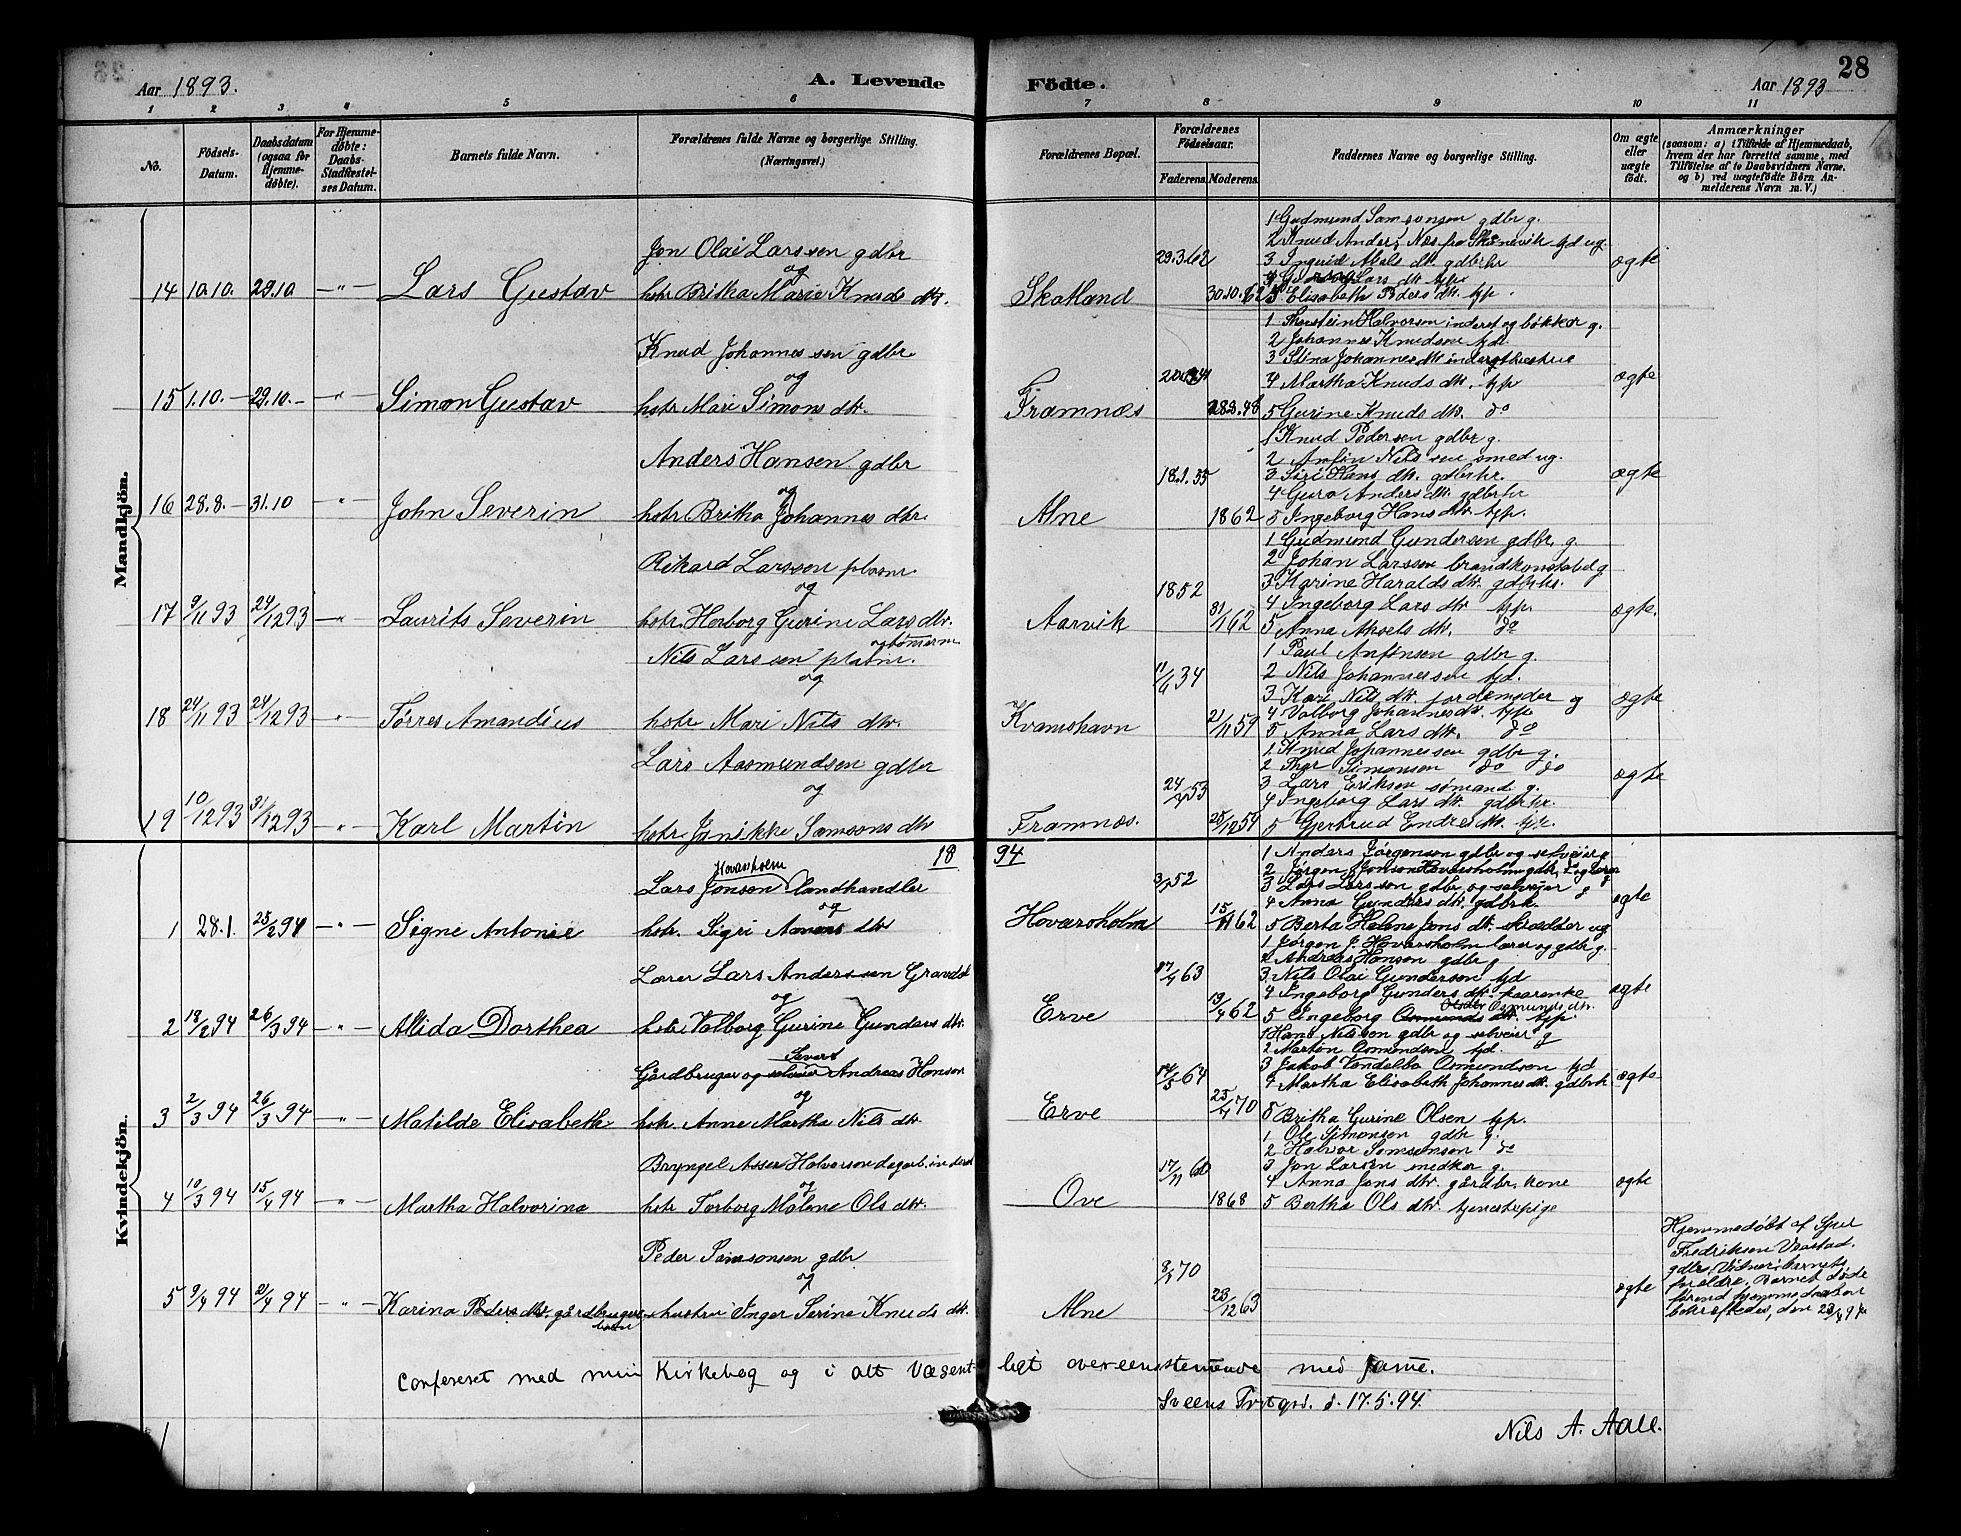 Aar 1893.
A. Levende
Födte.
Aar 1893
28
1 2 3 4 5 6 7 8 9 10 11
No.
Födsels-Datum.
Daabsdatum (ogsaa for Hjemmedøbte).
For Hjemmedøbte: Daabs-Stadfæstelses Datum.
Barnets fulde Navn.
Forældrenes fulde Navne og borgerlige Stilling.
(Næringsvei.)
Forældrenes Bopæl.
Forældrenes Födselsaar.
Faderens. Moderens.
Faddernes Navne og borgerlige Stilling.
Om ægte eller uægte født.
Anmærkninger
(saasom: a) i Tilfælde af Hjemmedaab,
hvem der har forrettet samme, med
Tilföielse af to Daabsvidners Navne,
og b) ved uægtefödte Börn An-
melderens Navn m. V.)
Mandkjön.
14 10.10. 29.10 —"— Lars Gustav
Jon Olai Larssen gdbr
og
hstr Britha Marie Knuds dtr.
Skotland
29.3.62
30.10.62
1 Gudmund Samsonsen gdbr g.
2 Knud Anders. Næs fra Skonevik tjd ug.
3 Ingrid Abels dtr gdbrkr
5 Elisabeth Peders dtr. tjp.
ægte
15 1.10.— 29.10.— —"— Simon Gustav
Knud Johannessen gdbr
og
hstr Mari Simons dtr.
Framnæs
1 Thorstein Halvorsen inderst og bøkker g.
2 Johannes Knudsen tjd.
3 Stina Johannes dtr inderst hustru
4 Martha Knuds dtr. tjp
5 Gurine Knuds dtr. do
ægte
16 28.8.— 31.10 —"— John Severin
Anders Hansen gdbr
og
hstr Britha Johannes dtr.
Alne
18.1.35
1862
1 Knud Pedersen gdbr g.
2 Anfin Nilssen smed ug.
3 Siri Hans dtr. gdbrkr.
4 Guro Anders dtr. gdbrkr
5 Ingeborg Hans dtr. tjp.
ægte
17 9/11 93 24/12 93 —"— Laurits Severin
Rikard Larssen plasm.
og
hstr. Herborg Gurine Lars dtr.
Aarvik
1852
31/1 62
1 Gudmund Gundersen gdbr, g.
2 Johan Larssen brandkonstabel g
3 Karine Haralds dtr. gdbrks.
4 Ingeborg Lars dtr tjp.
5 Anna Aksels dtr. do
ægte.
18 24/11 93 24/12 93 —"— Tørres Amandius
Nils Larssen platm. og tømerm
og
hstr Mari Nils dtr.
Kvamshavn
11/6 34
21/11 59
1 Paul Anfinsen gdbr g.
2 Nils Johannessen tjd.
3 Kari Nils dtr. jordemoder g
4 Valborg Johannes dtr. tjp
5 Anna Lars dtr. do
ægte
19 10/12 93 31/12 93 —"— Karl Martin
Lars Aasmundsen gdbr
og
hstr. Jønikke Samsons dtr
Framnæs.
24/3 53
25/12 59
1 Knud Johannessen gdbr g.
2 Thor Simonsen do do
3 Lars Eriksen sømand g.
4 Ingeborg Lars dtr. gdbrkr.
5 Gjertrud Endres dtr. tjp.
ægte
Kvindekjön.
18 94
1 28.1. 25/2 94 —"— Signe Antonie
Lars Jonson Hovarsholm landhandler
og
hstr. Sigri Amons dtr
Hovarsholm
3/1 52
15/11 62
1 Anders Jørgensen gdbr og selveier g
2 Jørgen Jonson Hovarsholm gdbr. og lærer
3 Lars Larssen gdbr og selveier g
4 Anna Gunders dtr. gdbrk.
5 Berta Helene Jons dtr. skrædder ug
ægte
2 18/2 94 26/3 94 —"— Alida Dorthea
Lærer Lars Anderssen Gravdal
og
hstr Valborg Gurine Gunders dtr.
Erve
17/4 63
19/4 62
1 Jørgen J. Hovarsholm lærer og gdbr g.
2 Andreas Hanson gdbr g
3 Nils Olai Gunderson tjd
4 Ingeborg Gunders dtr. kaarenke
5 Ingeborg Osmunds dtr. tjp.
ægte
3 2/3 94 26/3 94 —"— Matilde Elisabeth
Gårdbruger og selveier Andreas Hanson
og
hstr. Anne Martha Nils dtr.
Erve
14/5 64
25/4 70
1 Hans Nilsson gdbr og selveier g
2 Martin Osmundson tjd.
3 Jakob Vendelbo Osmundson tjd
4 Martha Elisabeth Johannes dtr. gdbrk
5 Britha Gurine Olsen tjp.
ægte
4 10/3 94 15/4 94 —"— Martha Halvorina
Bryngel Asser Halvorson dagarb. inderst
og
hstr Torborg Malene Ols dtr.
Ove
17/11 60
1868
1 Ole Simonsen gdbr g.
2 Halvor Samsonson do
3 Jon Larsen snedker g.
4 Anna Jons dtr. gårdbr. kone
5 Bertha Ols dtr. tjenestepige
ægte
5 9/4 94 21/4 94 —"— Karina Peders dtr. gårdbrugers barn
Peder Samsonsen gdbr
og
hustru Inger Serine Knuds dtr.
Alne
8/3 70
23/12 63
ægte
Hjemmedöbt af Sjur
Fredriksen Vaastad,
gdbr. Vidner: barnets
forældre. Barnet døde
førend hjemmedaaben
bekræftedes, den 23/4 94
Confereret med min Kirkebog og i alt Væsentligt overeenstemmende med samme.
Sveens Prstgrd. d. 17.5.94.
Nils A. Aall.